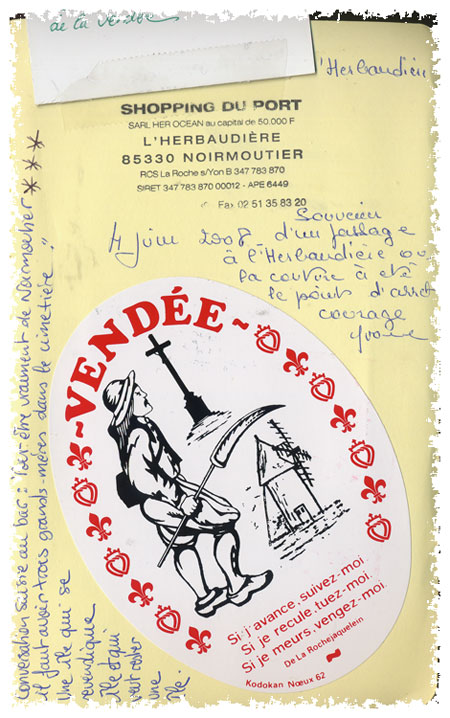 de la Vendée
l'Herbaudière
SHOPPING DU PORT
SARL HER OCEAN au capital de 50.000 F
L'HERBAUDIÈRE
85330 NOIRMOUTIER
RCS La Roche s/Yon B 347 783 870
SIRET 347 783 870 00012 - APE 6449
Fax 02 51 35 83 20
Souvenir
4 Juin 2008 d'un passage
à l'Herbaudière où
la couture a été
le point d'arrêt
courage
Conversation saisie au bar : "Pour être vraiment de Noirmoutier ***
il faut avoir trois grands-mères dans le cimetière !"
Une île qui se
revendique
île et qui
veut rester
une
île.
~VENDÉE~
Si j'avance, suivez-moi
Si je recule, tuez-moi.
Si je meurs, vengez-moi.
De La Rochejaquelein
Kodokan Nœux 62